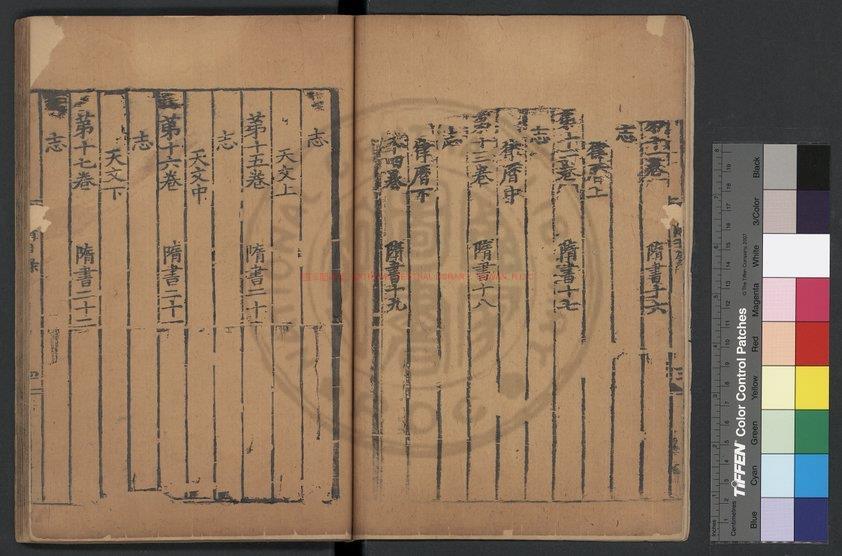 苐十一卷 隋書十六
志
律曆上
苐十二卷 隋書十七
志
律曆中
苐十三卷 隋書十八
志
律曆下
苐十四卷 隋書十九
志
天文上
苐十五卷 隋書二十
志
天文中
苐十六卷 隋書二十一
志
天文下
苐十七卷 隋書二十二
志
TIFFEN Color Control Patches
© The Tiffen Company, 2007
Inches
Centimetres
Blue
Cyan
Green
Yellow
Red
Magenta
White
3/Color
Black